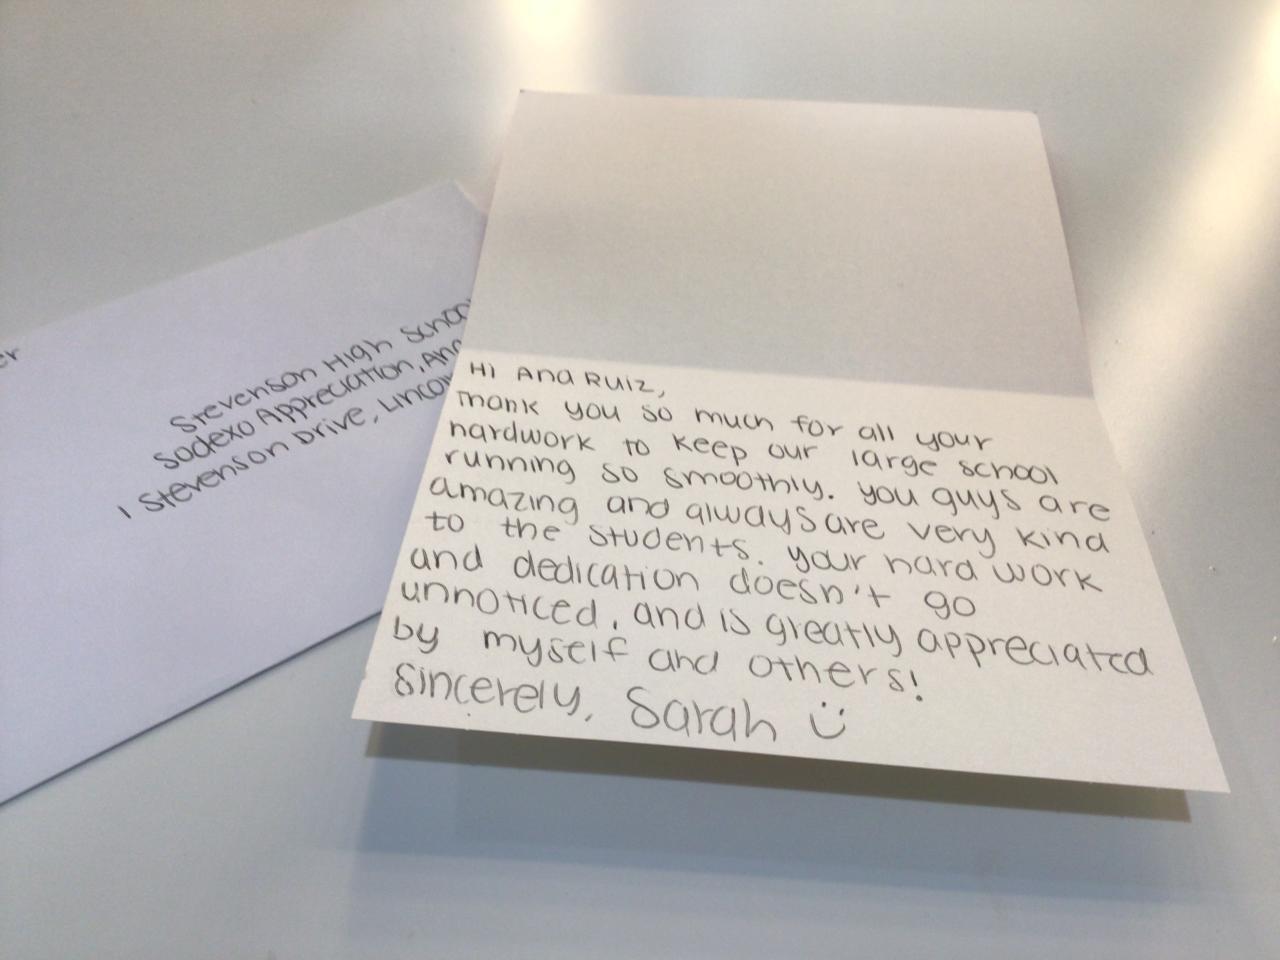 er
Stevenson High School
Sodexo Appreciation, Ana
1 Stevenson Drive, Lincol
Hi Ana Ruiz,
Thank you so much for all your
hardwork to keep our large school
running so smoothly. You guys are
amazing and always are very kind
to the students. Your hard work
and dedication doesn't go
unnoticed, and is greatly appreciated
by myself and others!
Sincerely, Sarah